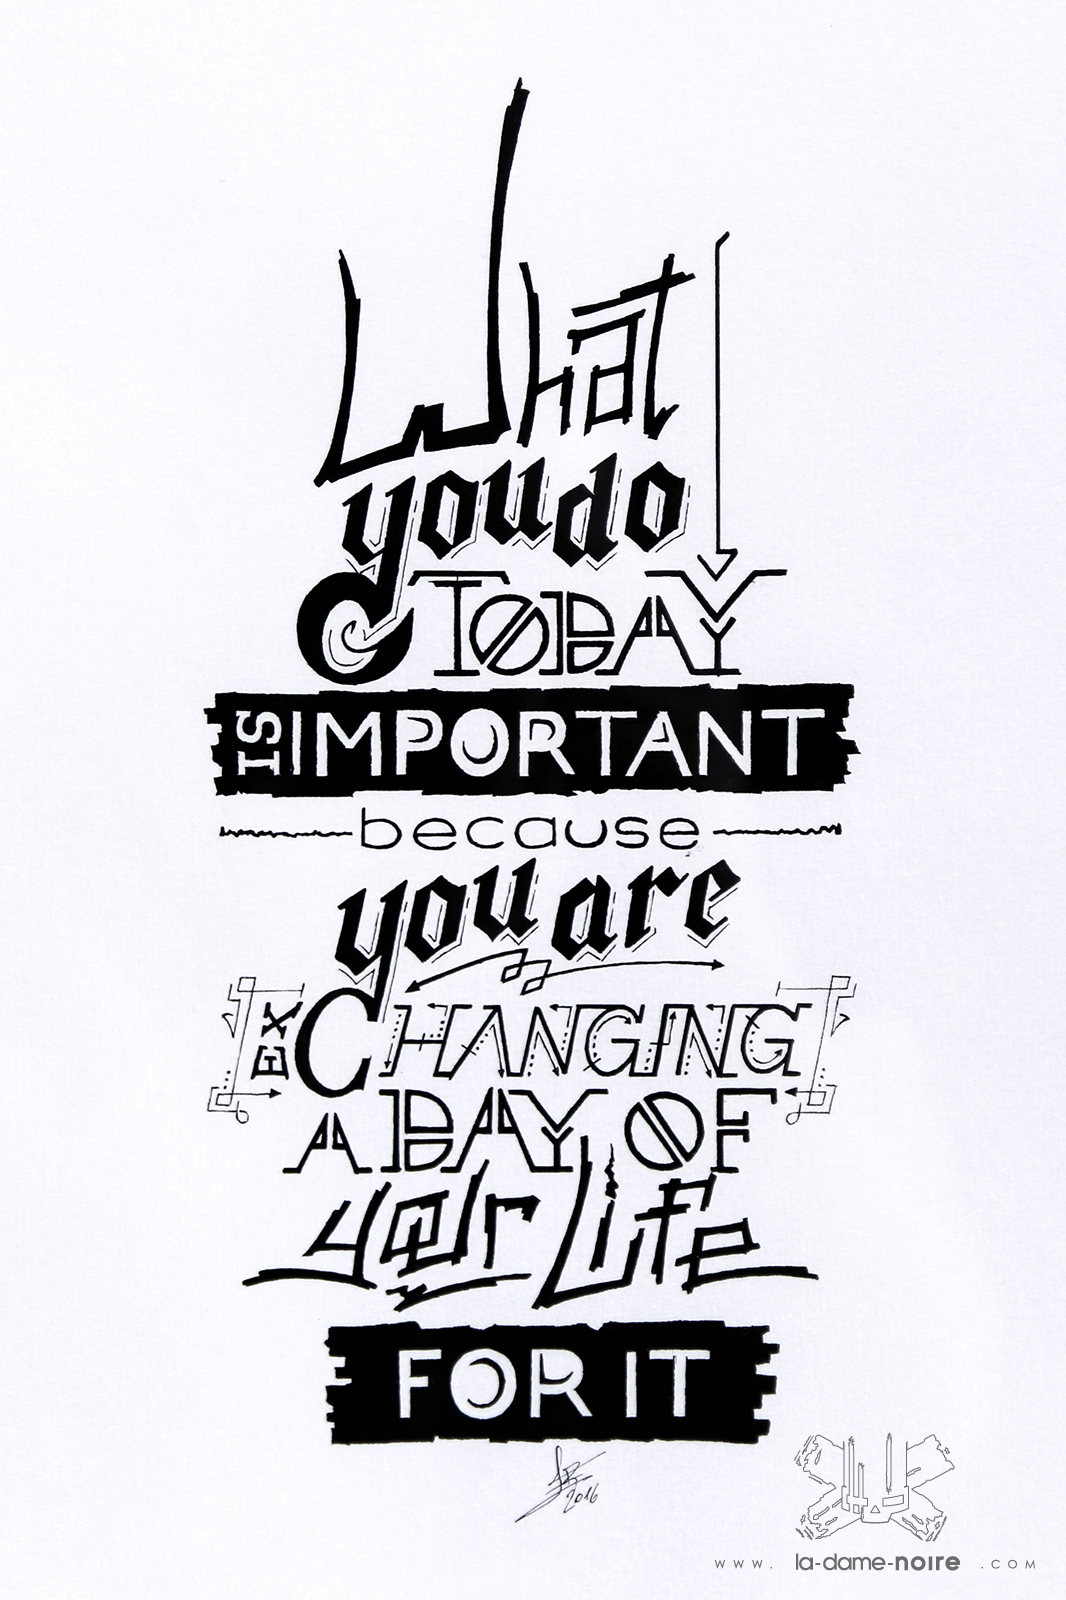 What
you do
TODAY
IS IMPORTANT
because
you are
EXCHANGING
A DAY OF
your Life
FOR IT
2016
www. la-dame-noire .com